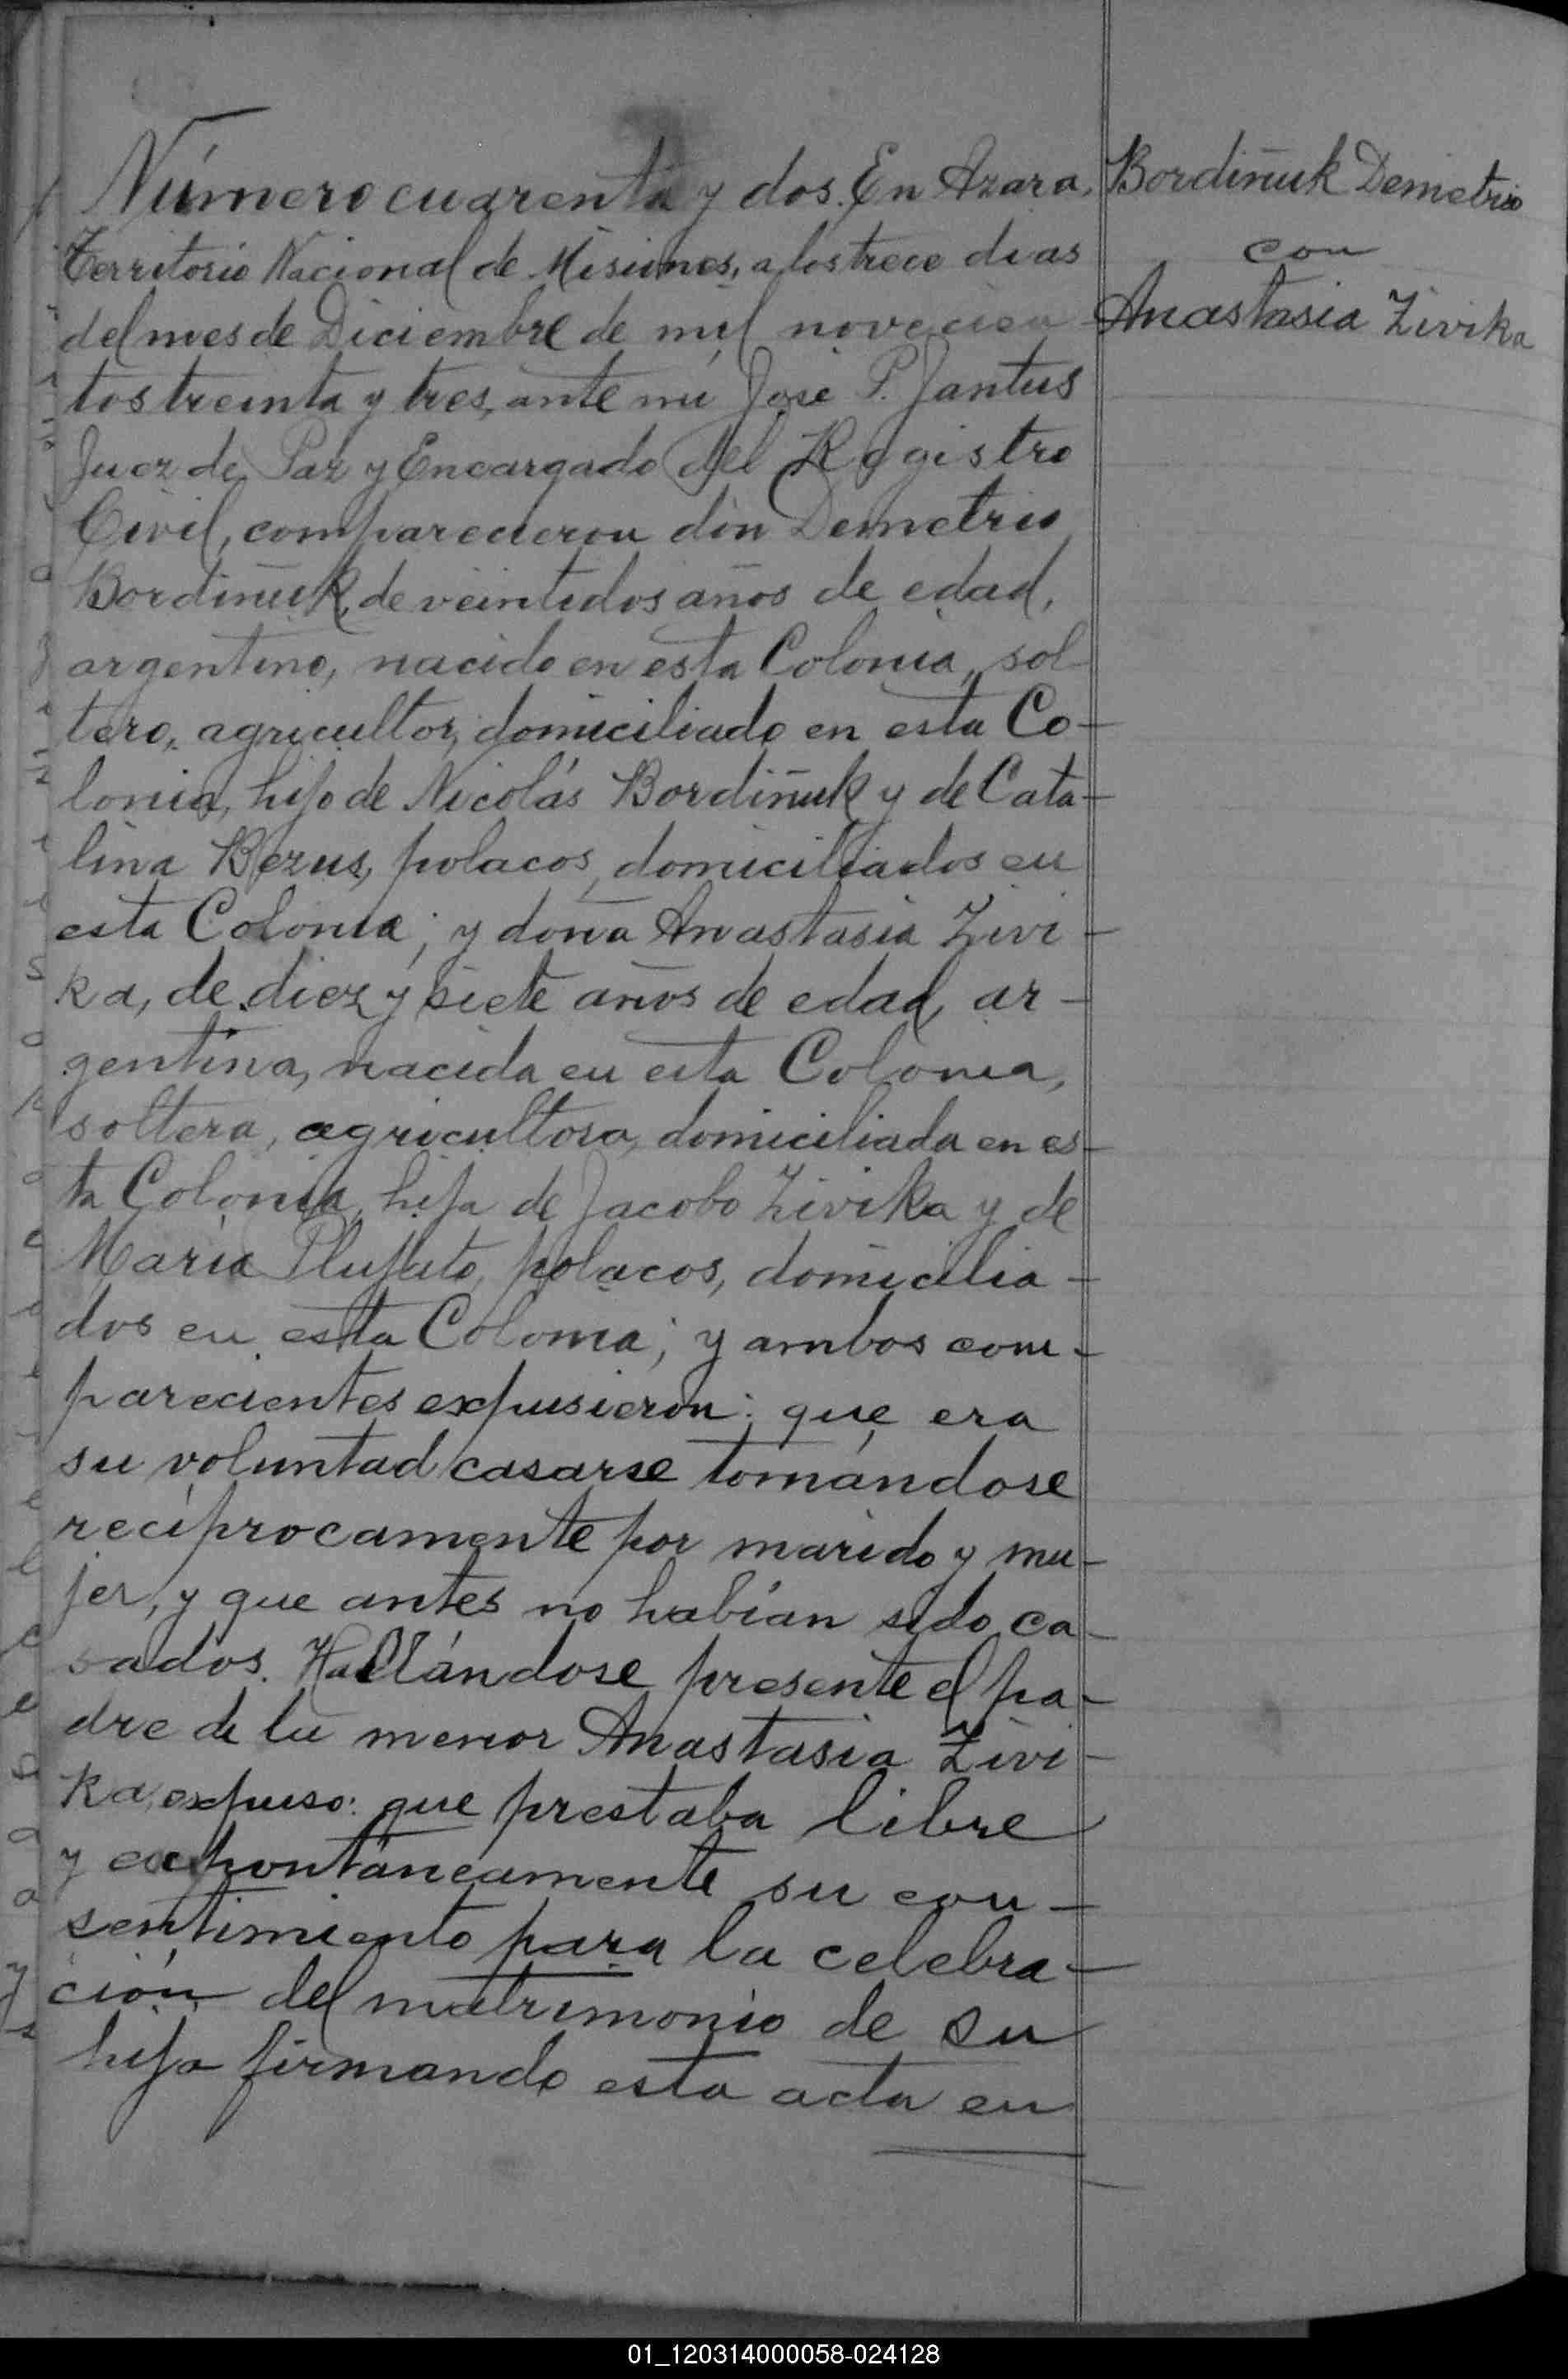 Número cuarenta y dos. En Azara,
Territorio Nacional de Misiones, a los trece dias
del mes de Diciembre de mil novecien
tos treinta y tres, ante mí José P. Jantus
Juez de Paz y Encargado del Registro
Civil, comparecieron don Demetrio
Bordiñuk, de veintidos años de edad,
argentino, nacido en esta Colonia, sol
tero, agricultor, domiciliado en esta Co-
lonia, hijo de Nicolás Bordiñuk y de Cata-
lina Bezus, polacos, domiciliados en
esta Colonia; y doña Anastasia Zivi-
ka, de diez y siete años de edad, ar-
gentina, nacida en esta Colonia,
soltera, agricultora, domiciliada en es-
ta Colonia, hija de Jacobo Zivika y de
María polacos, domicilia-
dos en esta Colonia; y ambos com-
parecientes expusieron: que era
su voluntad casarse tomándose
recíprocamente por marido y mu-
jer, y que antes no habían sido ca-
sados. Hallándose presente el pa-
dre de la menor Anastasia Zivi-
ka, expuso: que prestaba libre
y expontáneamente su con-
sentimiento para la celebra-
ción del matrimonio de su
hija firmando esta acta en
Bordiñuk Demetrio
con
Anastasia Zivika
01_120314000058-024128